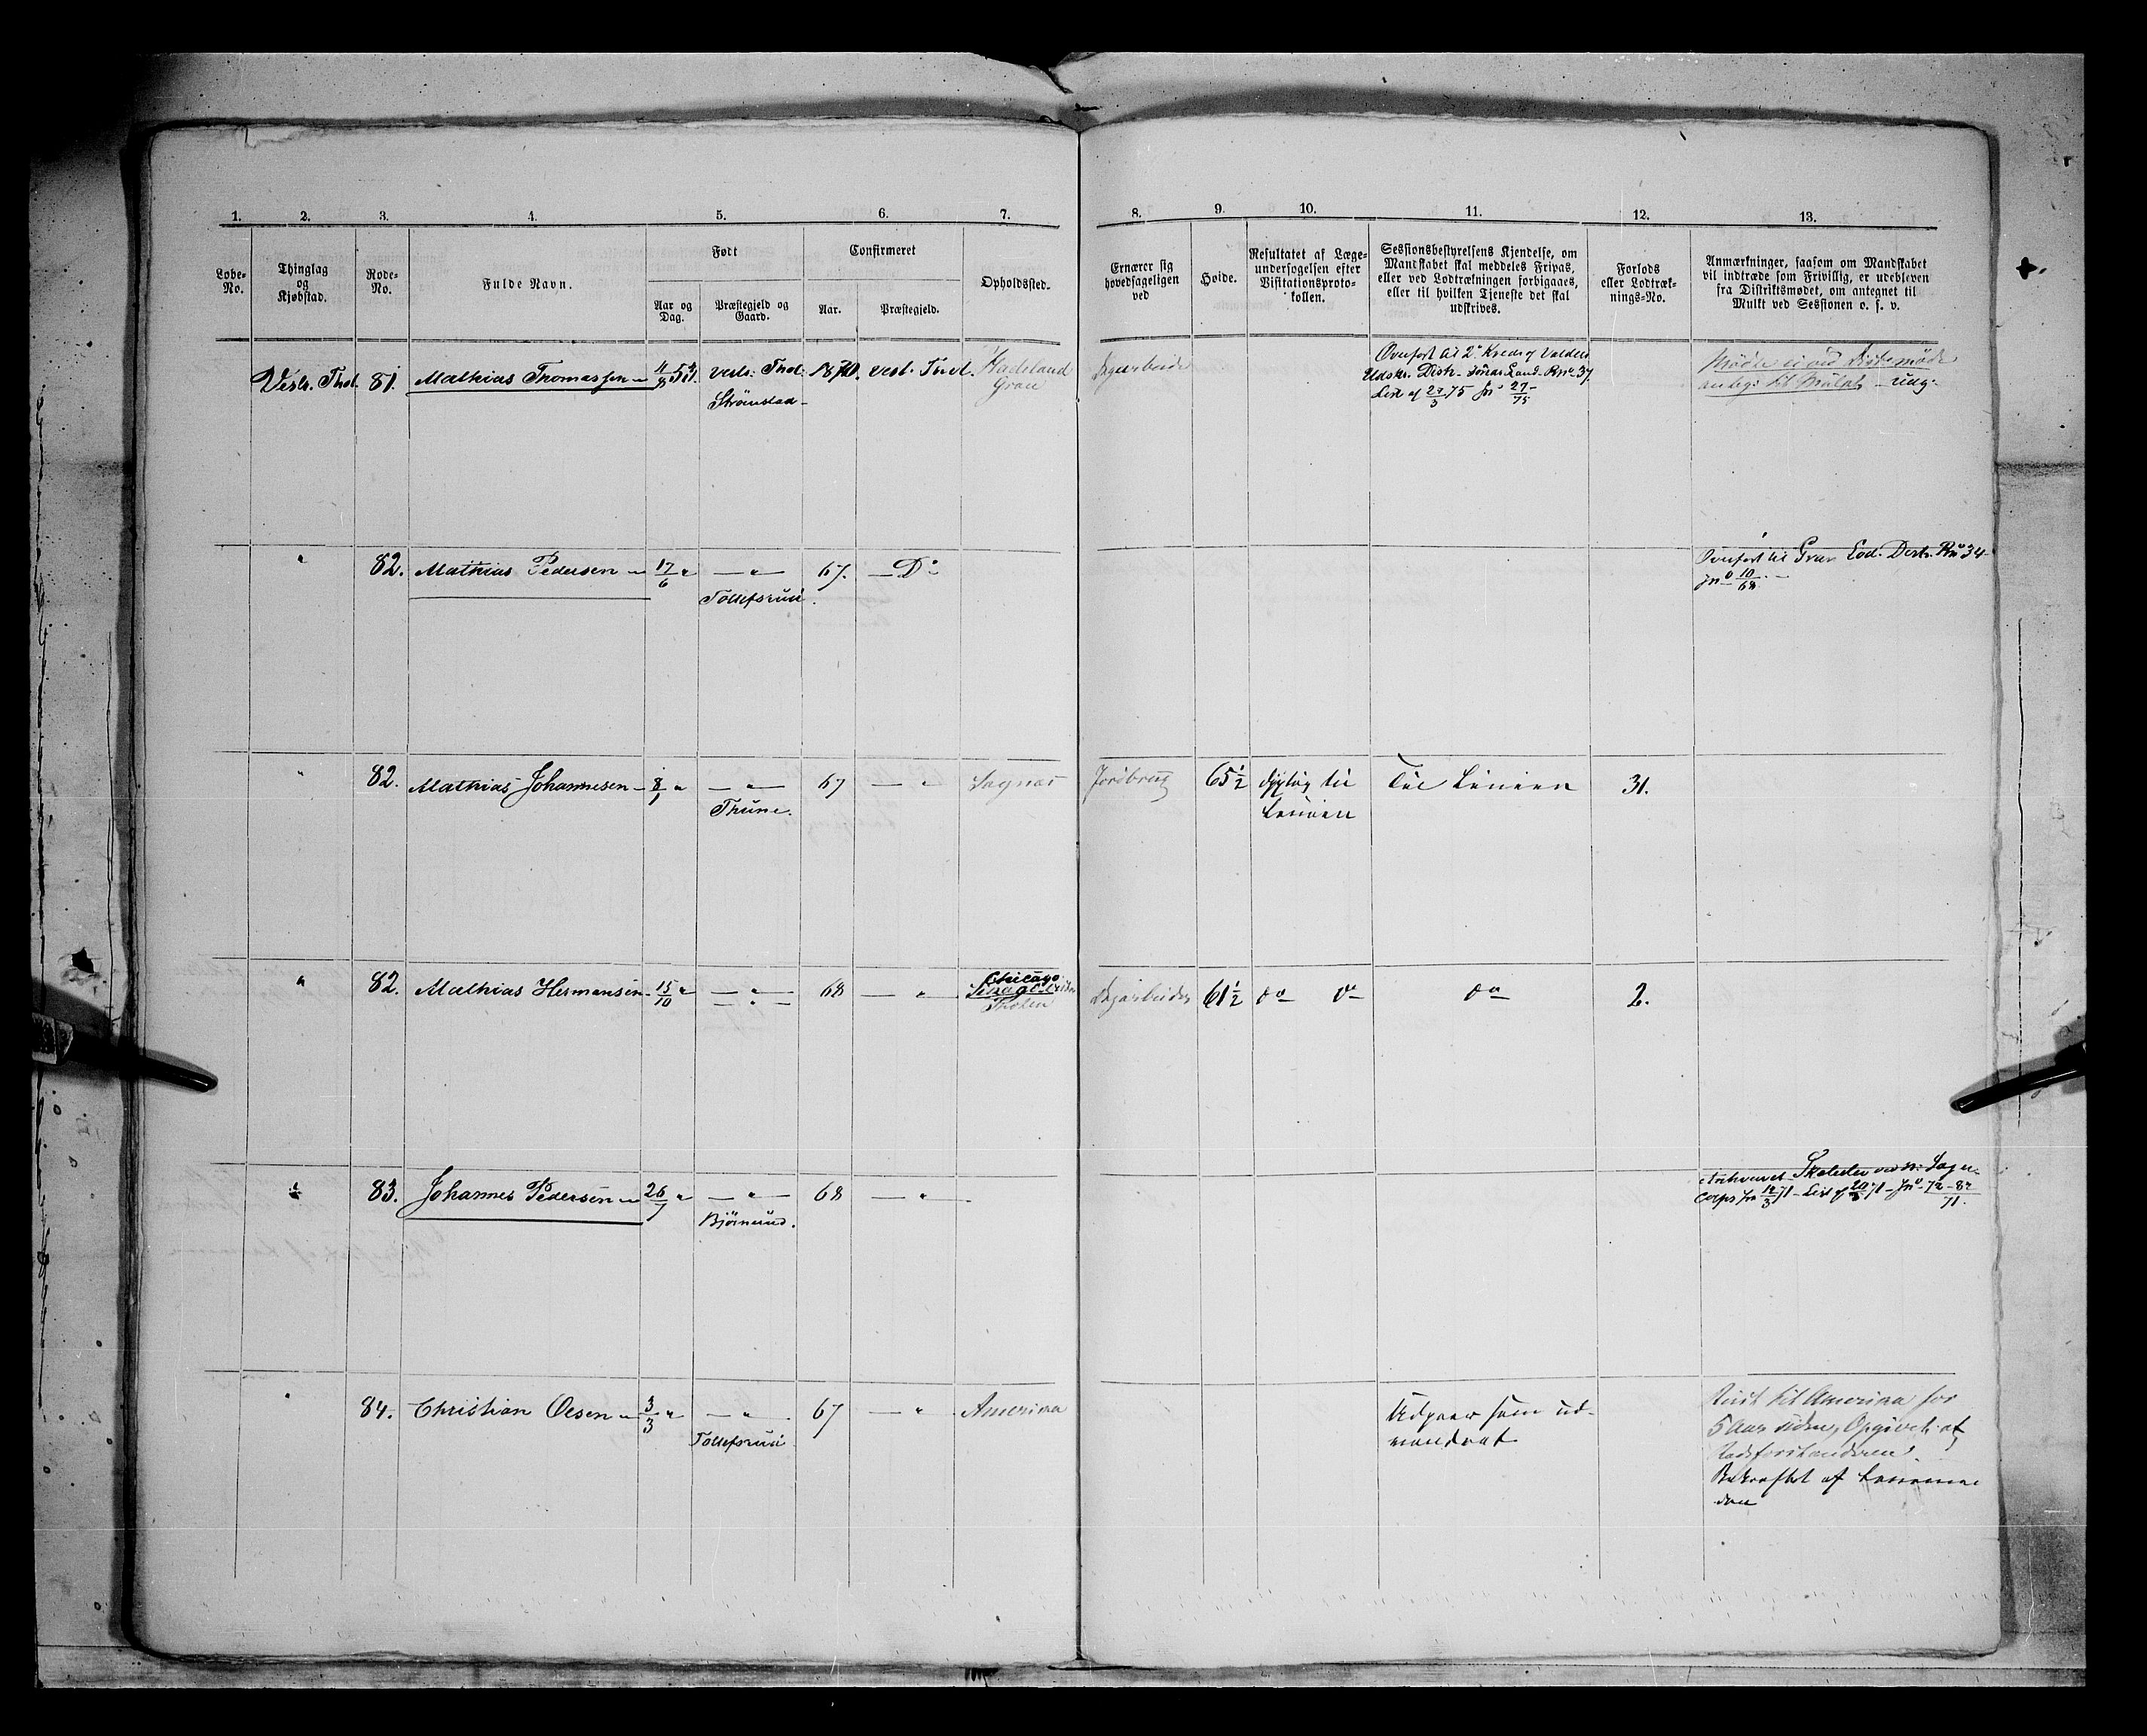 1. 2. 3. 4. 5. 6. 7. 8. 9. 10. 11. 12. 13.
Løbe-
No.
Thinglag
og
Kjøbstad.
Rode-
No.
Fulde Navn.
Født
Aar og
Dag.
Præstegjeld og
Gaard.
Confirmeret
Aar.
Præstegjeld.
Opholdssted.
Ernærer sig
hovedsageligen
ved
Høide.
Resultatet af Læge-
undersøgelsen efter
Visitationsproto-
kollen.
Sessionsbestyrelsens Kjendelse, om
Mandskabet skal meddeles Fripas,
eller ved Lodtrækningen forbigaaes,
eller til hvilken Tjeneste det skal
udskrives.
Forlods
eller Lodtræk-
nings-No.
Anmærkninger, saasom om Mandskabet
vil indtræde som Frivillig, er udebleven
fra Distriktsmødet, om antegnet til
Mulkt ved Sessionen o. s. v.
Vestr. Thot. 81. Mathias Thomassen 11/8 53 Vestr. Thot. 1870. Vest. Thot. Hadeland
Strånstad Gran
Overført til 2den Kreds af Valders
Udskr. Distr. søndre Land Rno 37
List af 27/3 75 Jno 27/75
Mødte ei ved Distr.mødet
antegn. til Mulkt - udg.
" 82. Mathias Pedersen 17/6 " — " — 67. — Do
Tollefsrud.
Overført til Gran Lod. Distr. Rno 34
Jno 10/68.
" 82. Mathias Johannesen 8/1 " — " — 67 — " Sagnas Jordbrug 65 1/2 dygtig til Til Linien 31.
Thune. Linien
" 82. Mathias Hermansen 15/10 " — " — 68 — " Chicago
— " — Thoten
Dagarbeider 61 1/2 do do do 2.
" 83. Johannes Pedersen 26/7 " — " — 68 — "
Bjørnerud.
Corps fra 12/3 71 - List af 20/3 71 - Jno 72-82/71.
" 84. Christian Olsen 3/3 " — " — 67 — " Amerika
Tollefsrud
Udgaar som ud-
vandret
Reist til Amerika for
5 Aar siden, Opgivet af
Rodeforstanderen.
Bekræftet af Lensman-
den